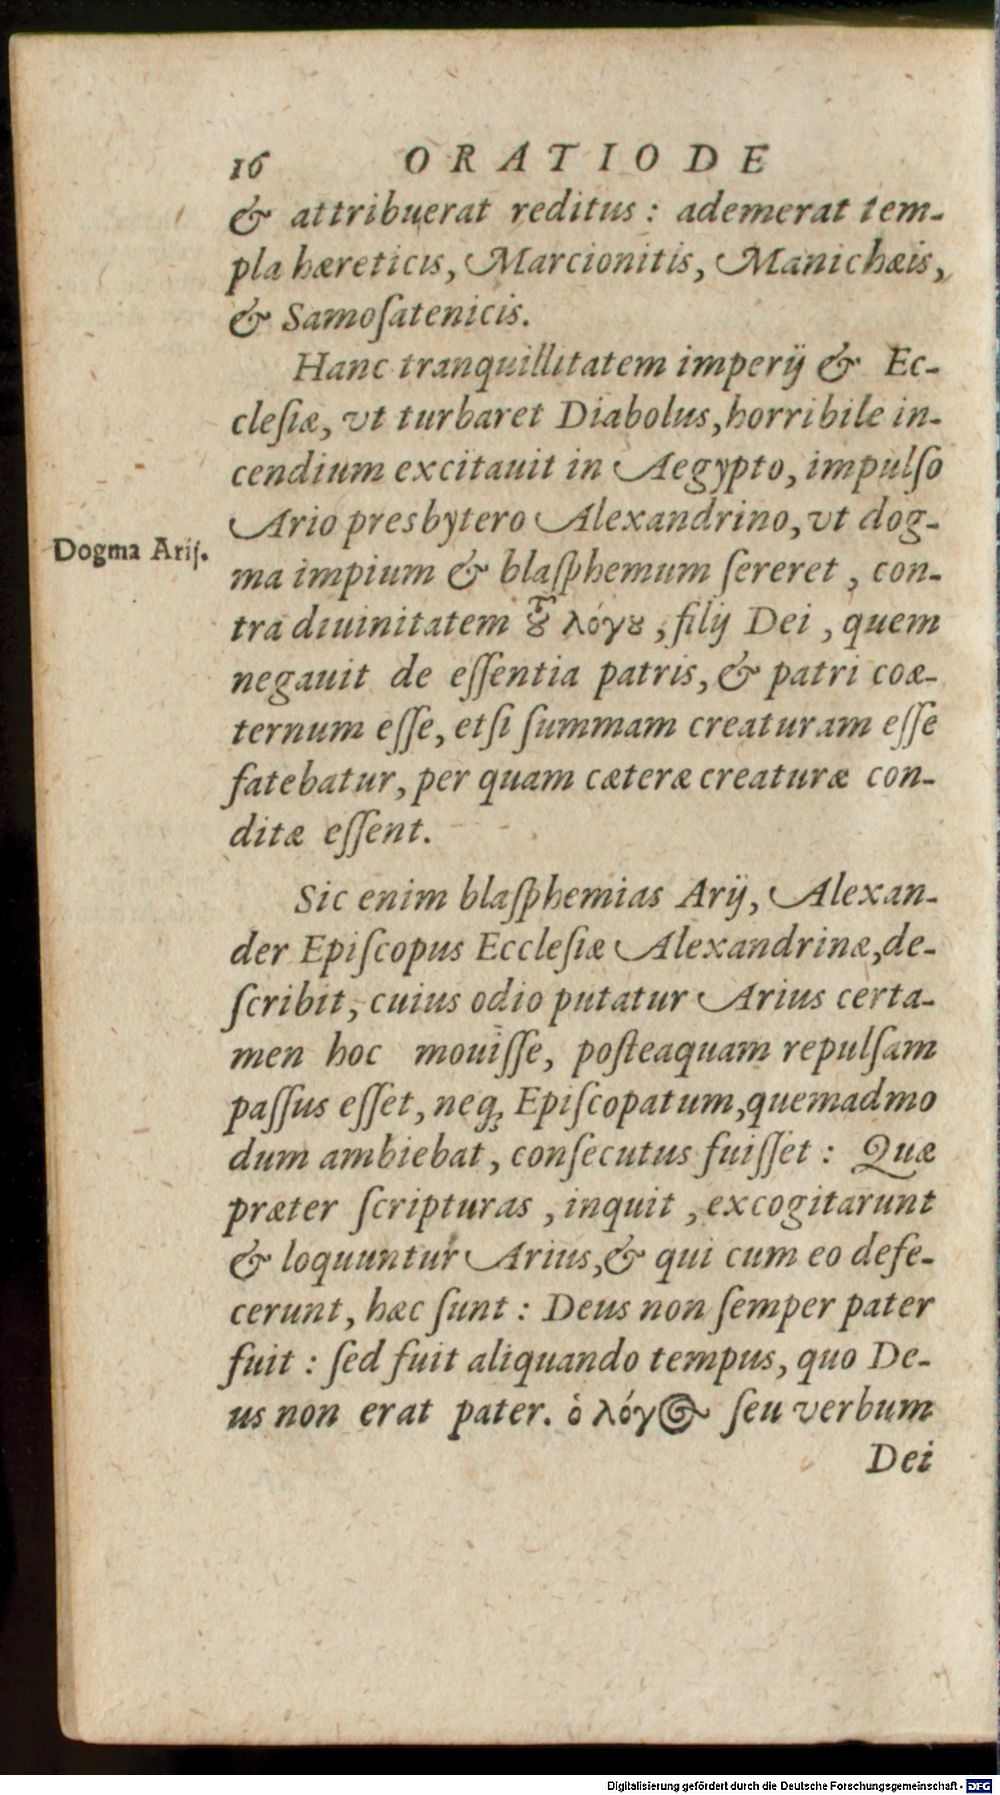 16 ORATIO DE
& attribuerat reditus : ademerat tem-
pla hæreticis, Marcionitis, Manichæis,
& Samoſatenicis.
Hanc tranquillitatem imperij & Ec-
cleſiæ, vt turbaret Diabolus, horribile in-
cendium excitauit in Aegypto, impulſo
Ario presbytero Alexandrino, vt dog-
Dogma Arij.
ma impium & blaſphemum ſereret , con-
tra diuinitatem τȣ͂ λόγȣ , filij Dei , quem
negauit de eſſentia patris, & patri coæ-
ternum eſſe, etſi ſummam creaturam eſſe
fatebatur, per quam cæteræ creaturæ con-
ditæ eſſent.
Sic enim blaſphemias Arij, Alexan-
der Epiſcopus Eccleſiæ Alexandrinæ, de-
ſcribit, cuius odio putatur Arius certa-
men hoc mouiſſe, poſteaquam repulſam
paſſus eſſet, neq; Epiſcopatum, quemadmo
dum ambiebat , conſecutus fuiſſet : Quæ
præter ſcripturas , inquit , excogitarunt
& loquuntur Arius, & qui cum eo defe-
cerunt, hæc ſunt : Deus non ſemper pater
fuit : ſed fuit aliquando tempus, quo De-
us non erat pater. ὁ λόγος ſeu verbum
Dei
Digitalisierung gefördert durch die Deutsche Forschungsgemeinschaft - DFG